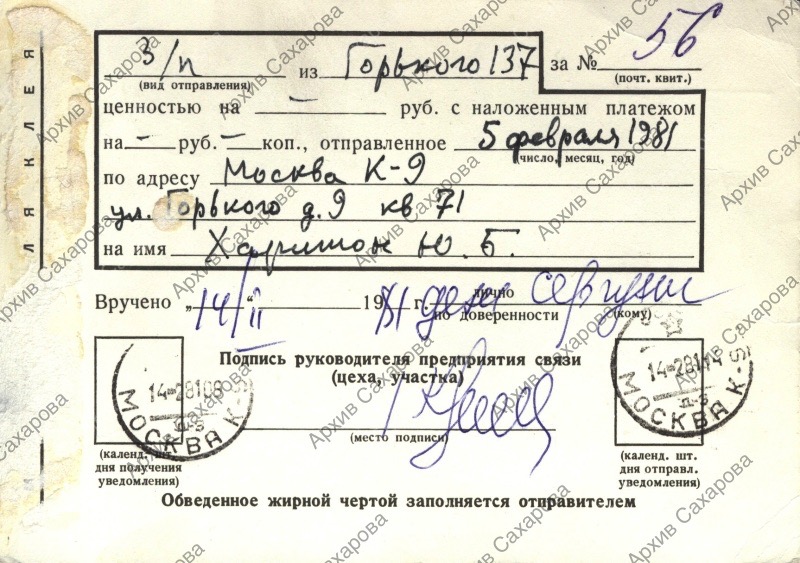 З/п из Горького 137 за № 56
(вид отправления) (почт. квит.)
ценностью на — руб. с наложенным платежом
на — руб. — коп., отправленное 5 февраля 1981
(число, месяц, год)
по адресу Москва К-9
ул. Горького д. 9 кв 71
на имя Харитон Ю. Б.
Вручено „14/II“ 1981 г. лично
по доверенности
(кому)
Подпись руководителя предприятия связи
(цеха, участка)
(место подписи)
14-28108
МОСКВА К-9
14-28114
МОСКВА К-9
(календ. шт.
дня получения
уведомления)
(календ. шт.
дня отправл.
уведомления)
Обведенное жирной чертой заполняется отправителем
ЛЯ КЛЕЯ
Архив Сахарова